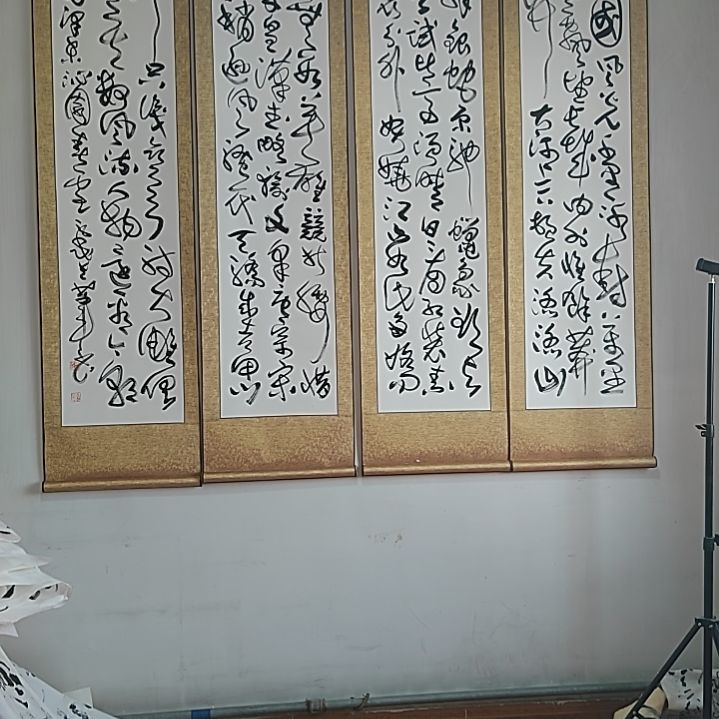 国风光千里冰封万里
雪飘望长城内外惟余莽
莽大河上下顿失滔滔山
舞银蛇原驰蜡象欲与
公试比高须晴日看红装素
裹分外妖娆江山如此多娇引
无数英雄竞折腰惜
秦皇汉武略输文采唐宗宋
祖稍逊风骚一代天骄成吉思
只识弯弓射大雕俱
往矣数风流人物还看今朝
泽东沁园春雪